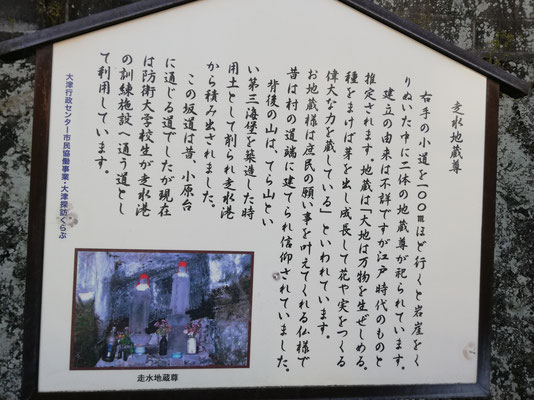 走水地蔵尊
右手の小道を一〇〇mほど行くと岩崖をく
りぬいた中に二体の地蔵尊が祀られています。
建立の由来は不詳ですが江戸時代のものと
推定されます。地蔵は「大地は万物を生ぜしめる。
種をまけば芽を出し成長して花や実をつくる
偉大な力を蔵している」といわれています。
お地蔵様は庶民の願い事を叶えてくれる仏様で
昔は村の道端に建てられ信仰されていました。
背後の山は、てら山とい
い第三海堡を築造した時
用土として削られ走水港
から積み出されました。
この坂道は昔、小原台
に通じる道でしたが現在
は防衛大学校生が走水港
の訓練施設へ通う道とし
て利用しています。
大津行政センター市民協働事業・大津探訪くらぶ
走水地蔵尊